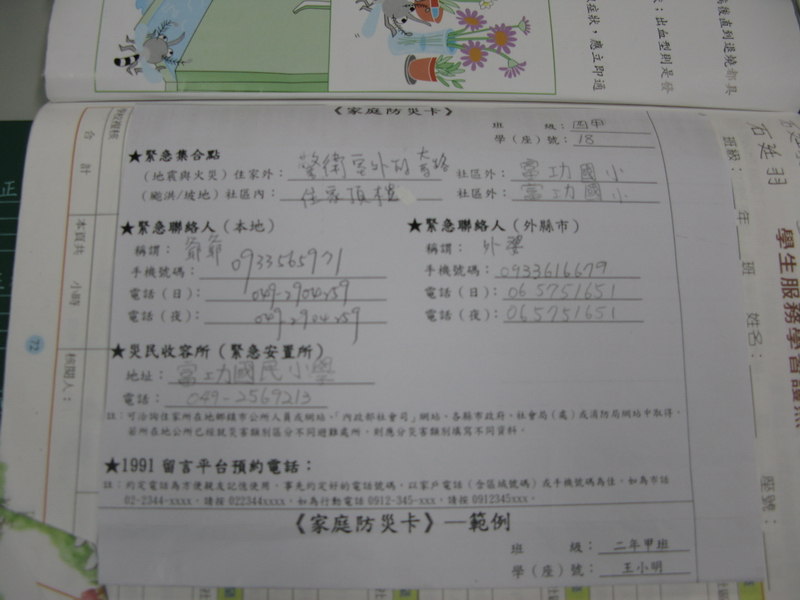 病後直到退燒都具
出血型則是發
症狀，應立即通
《家庭防災卡》
班　　級：四甲
學（座）號：18
★緊急集合點
（地震與火災）住家外：警衛室外的大馬路 社區外：富功國小
（颱洪/坡地）社區內：住家頂樓 社區外：富功國小
★緊急聯絡人（本地）
稱謂：爺爺
手機號碼：0933565971
電話（日）：049-2904259
電話（夜）：049-2904259
★緊急聯絡人（外縣市）
稱謂：外婆
手機號碼：0933616679
電話（日）：065751651
電話（夜）：065751651
★災民收容所（緊急安置所）
地址：富功國民小學
電話：049-2569213
註：可洽詢住家所在地鄉鎮市公所人員或網站、「內政部社會司」網站、各縣市政府、社會局（處）或消防局網站中取得。
若所在地公所已按就災害類別區分不同避難處所，則應分災害類別填寫不同資料。
★1991 留言平台預約電話：
註：約定電話為方便親友記憶使用，事先約定好的電話號碼，以家戶電話（含區域號碼）或手機號碼為佳，如為市話
02-2344-xxxx，請按 022344xxxx，如為行動電話 0912-345-xxx，請按 0912345xxx。
《家庭防災卡》—範例
班　　級：二年甲班
學（座）號：王小明
合計
本頁共　小時
核閱人：
72
石廷羽
班級：　年　班　姓名：　座號：
學生服務學習護照